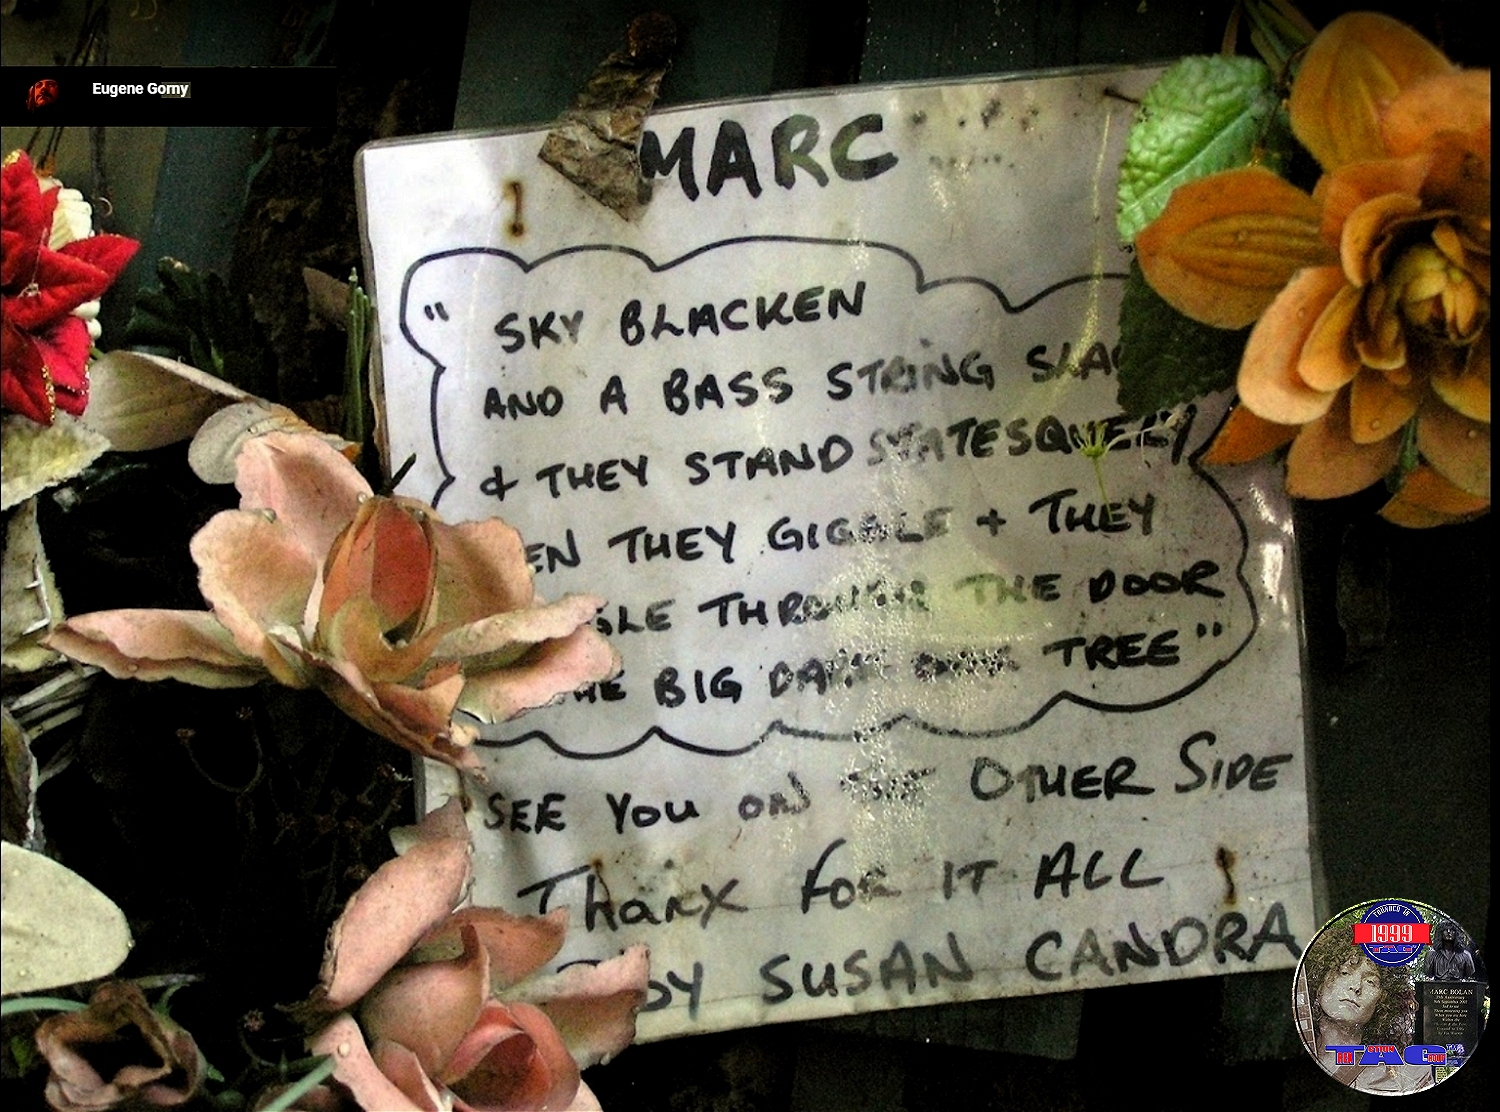 Eugene Gorny
MARC
" SKY BLACKEN
AND A BASS STRING SLA
& THEY STAND STATESQUELY
EN THEY GIGGLE + THEY
GLE THROUGH THE DOOR
HE BIG DARK OAK TREE "
SEE YOU ON THE OTHER SIDE
Thanx for IT ALL
BY SUSAN CANDRA
FOUNDED IN
1999
TAG
MARC BOLAN
TAG